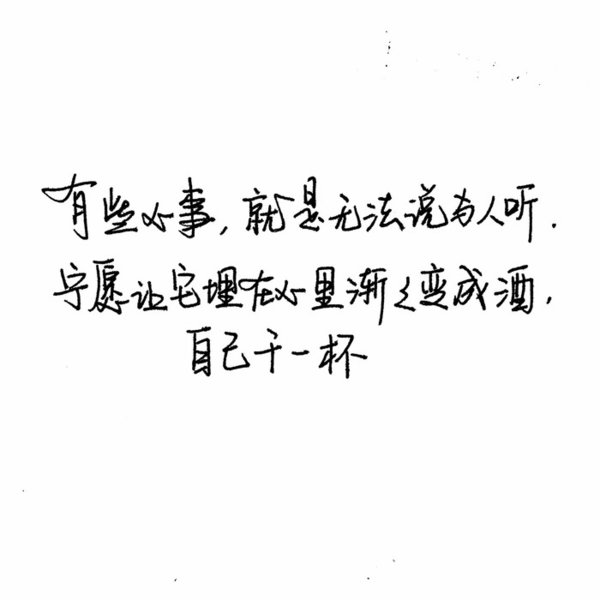 有些心事,就是无法说与人听.
宁愿让它埋在心里渐々变成酒,
自己干一杯